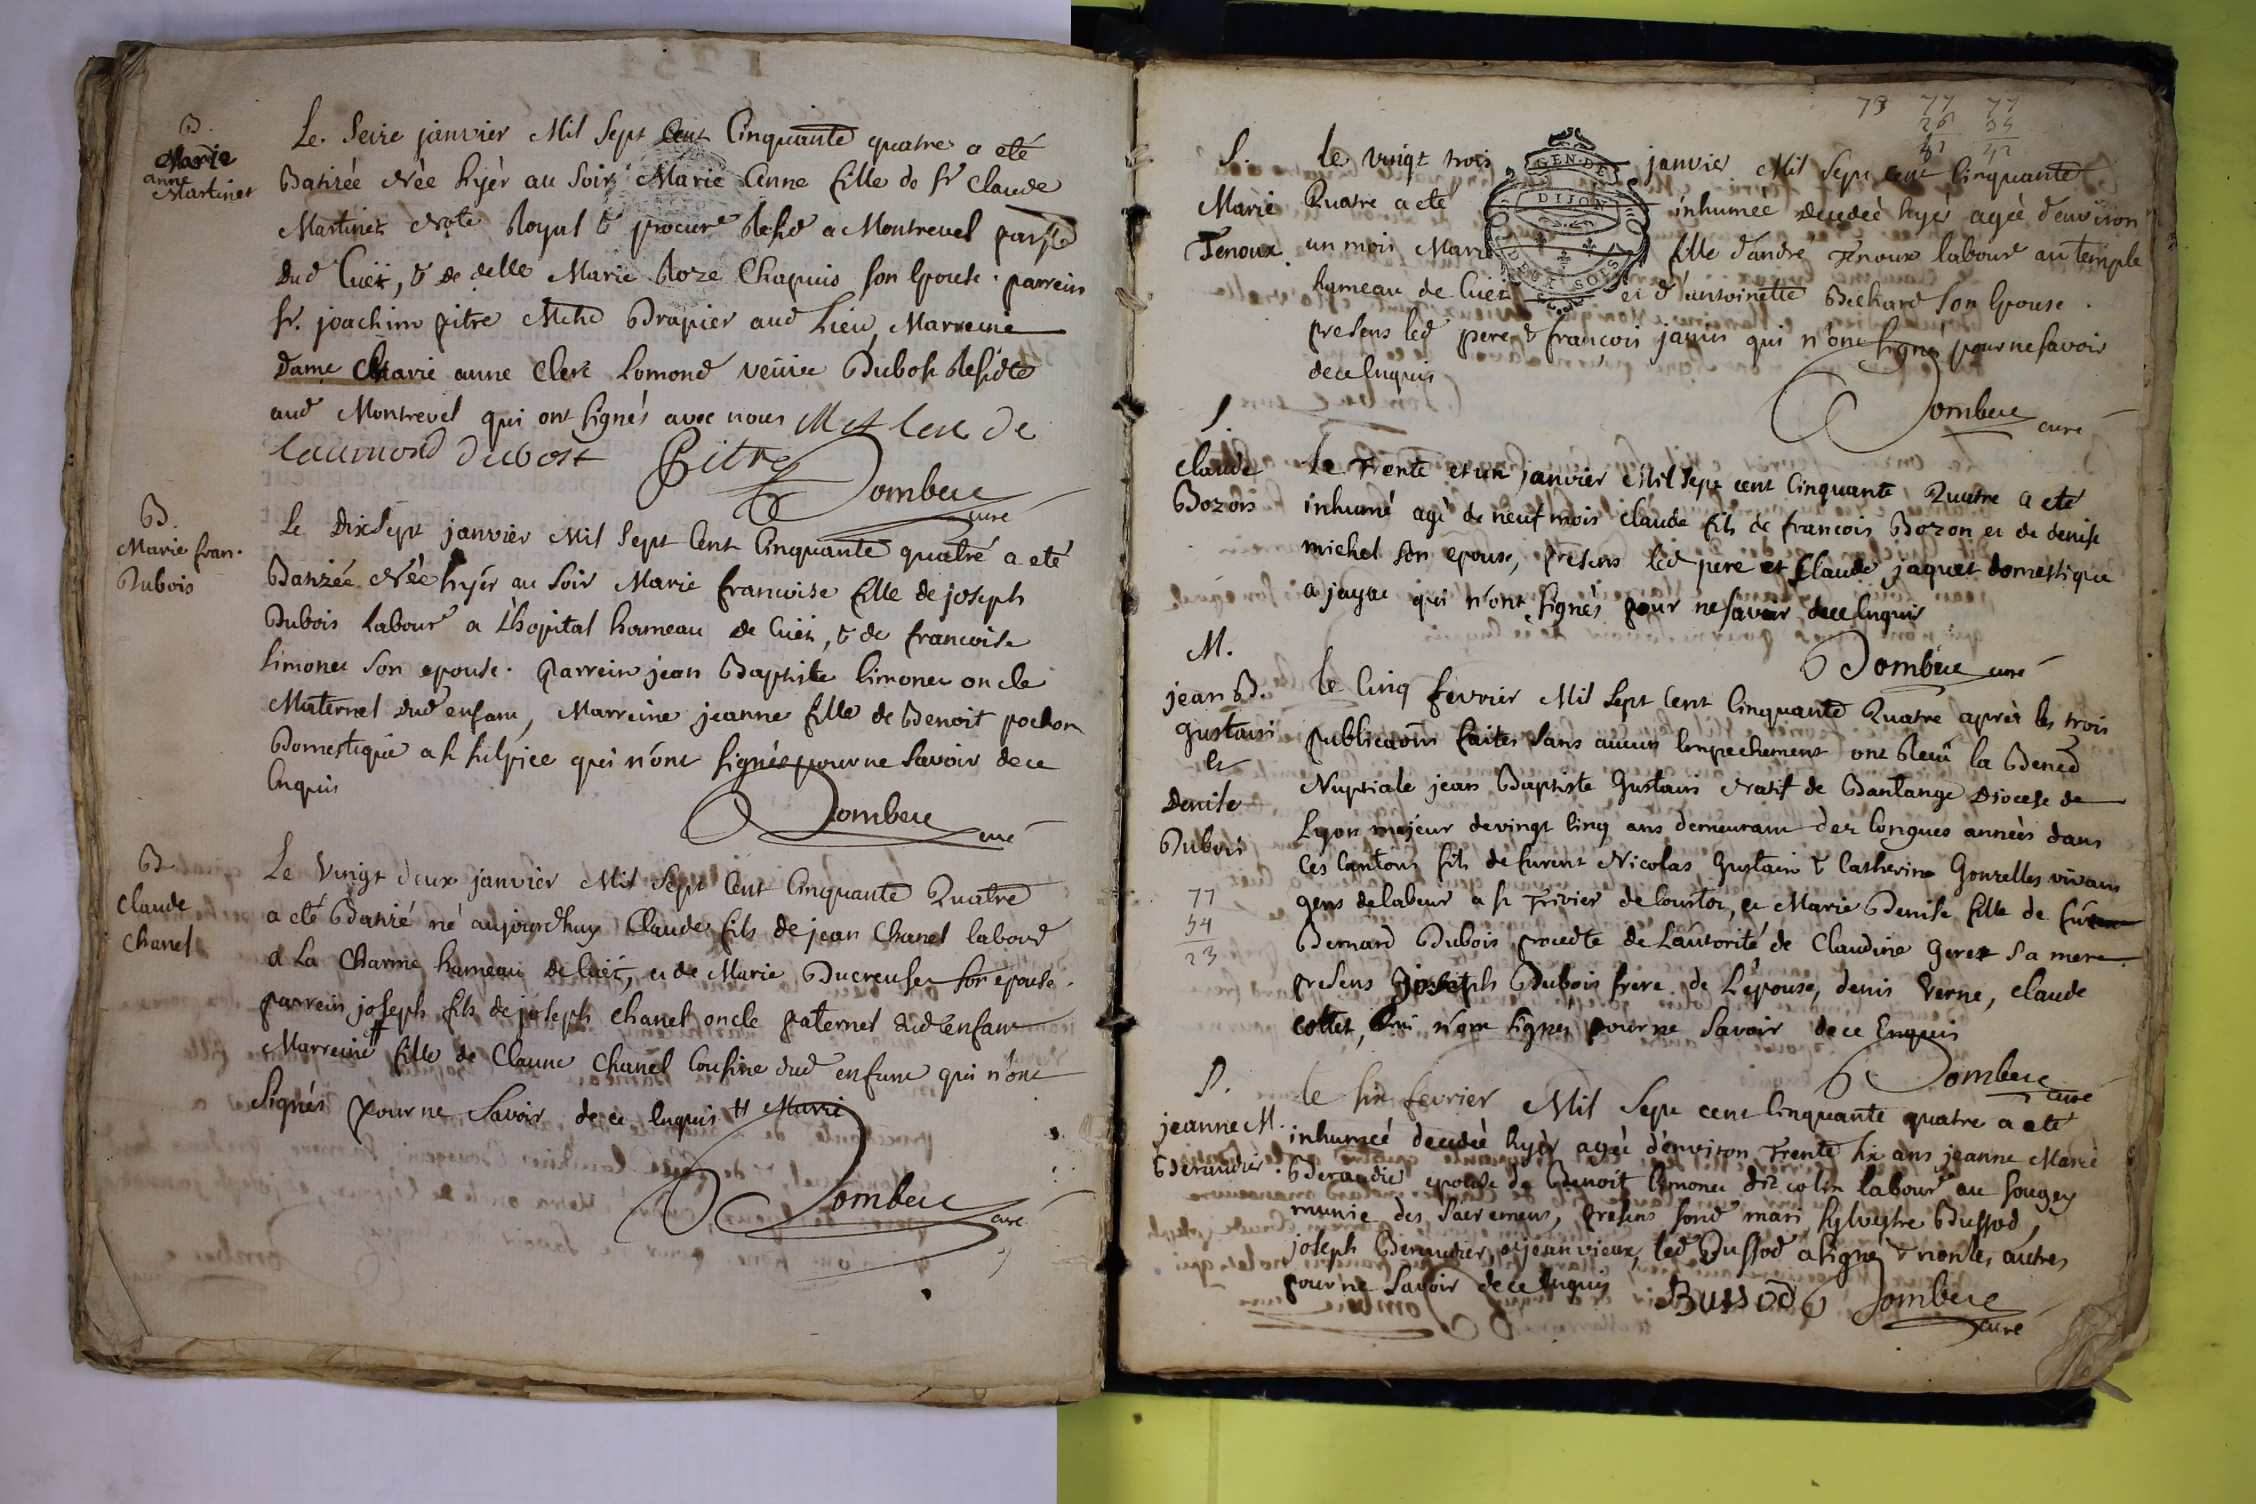 B.
Marie
anne
Martinet
Le Seize janvier Mil Sept Cent Cinquante quatre a eté
Batizée Née hyèr au Soir Marie Anne fille de Sr Claude
Martinet Note Royal & procur Resid a Montrevel parsse
Dud Cuët, & de delle Marie Roze Chapuis son Epouse. parrein
Sr. joachim pitre Mchd Drapier aud Lieu, Marreine
Dame Marie anne Clerc Lomond veüve Dubost Residte
aud Montrevel qui ont Signés avec nous M A Clerc De
Laumond dubost Pitre
Dombeie curé
B.
Marie fran.
Dubois
Le Dixsept janvier Mil Sept Cent Cinquante quatre a eté
Batizée Née hyér au Soir Marie francoise fille de joseph
Dubois labour a Lhopital hameau de Cuët, & de francoise
Simonet Son epouse. parrein jean Baptiste Simonet oncle
Maternel dud enfant, Marreine jeanne fille de Benoit pochon
Domestique a St Sulpice qui n'ont Signés pour ne Savoir de ce
Enquis
Dombeie curé
B.
Claude
Chanel
Le Vingt deux janvier Mil Sept Cent Cinquante Quatre
a eté Batizé né aujourdhuy Claude fils de jean Chanel labour
a La Charme hameau de Cuët, et de Marie Ducreuse Son epouse.
parrein joseph fils de joseph Chanel oncle paternel dud enfant
Marreine # fille de Claude Chanel Cousine dud enfant qui n'ont
Signés pour ne Savoir de ce Enquis # Marie
Dombeie curé
73 77 77
26 54
S.
Marie
Tenoux.
le vingt trois janvier Mil Sept cent Cinquante
Quatre a eté inhumée decedeé hyér ageè d'environ
un mois Marie fille d'andré Tenoux labour au temple
hameau de Cuët et d'antoinette Bechard Son Epouse.
presens led pere & francois janin qui n'ont Signés pour ne savoir
de ce Enquis
GEN. DE
DIJON
Dombeie curé
S.
Claude
Bozon
Le Trente et un janvier Mil Sept cent Cinquante Quatre a eté
inhumé agé de neuf mois Claude fils de francois Bozon et de denise
michel Son epouse, Presens led pere et Claude jaquet domestique
a jayac qui n'ont Signés pour ne savoir de ce Enquis
Dombeie curé
M.
jean B.
Gustain
et
Denise
Dubois
77
54
23
le Cinq fevrier Mil Sept Cent Cinquante Quatre aprèr les trois
publicaõns faites Sans aucun Empechement ont Receu la Bened
Nuptiale jean Baptiste Gustain Natif de Bantange Diocese de
Lyon majeur de vingt Cinq ans demeurant dez Longues années dans
Ces Cantons fils de furent Nicolas Gustain & Catherine Gonzelles vivans
gens de labeur a St Trivier de Courtor, et Marie Denise fille de
Bernard Dubois procedte de Lautorité de Claudine Geret Sa mere
presens joseph Dubois frere de L'épouse, denis Verne, Claude
Cottet, qui n'ont Signés pour ne Savoir de ce Enquis
Dombeie curé
S.
jeanne M.
Beraudier.
le Six fevrier Mil Sept cent Cinquante quatre a eté
inhumeé decedeé hyér ageé d'environ Trente Six ans jeanne Marie
Beraudier epouse de Benoit Simonet dit colin labour au Sougey
munie des Sacremens, Presens Sond mari Sylvestre Bussod,
joseph Beraudier, et jean vieux, led Bussod a Signé & non les autres
pour ne Savoir de ce Enquis Bussod Dombeie
curé